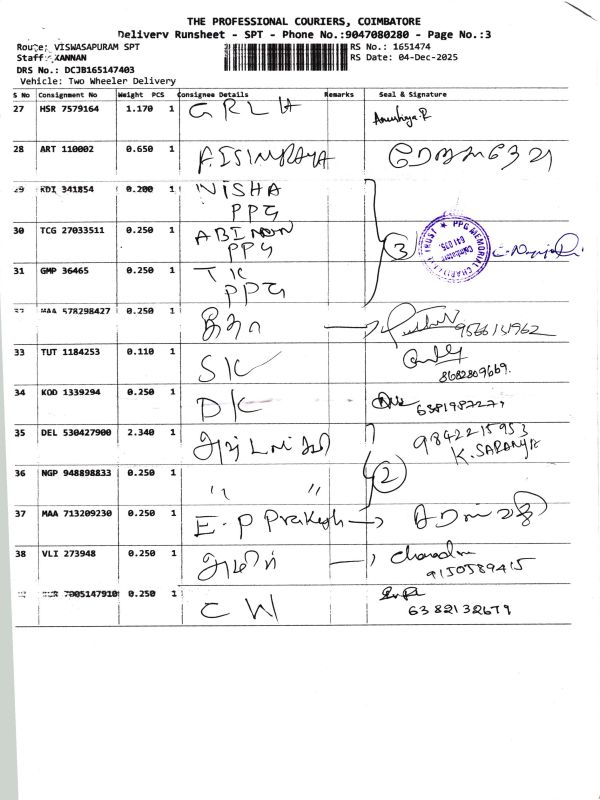 THE PROFESSIONAL COURIERS, COIMBATORE
Delivery Runsheet - SPT - Phone No.:9047080280 - Page No.:3
Route: VISWASAPURAM SPT
RS No.: 1651474
Staff: KANNAN
RS Date: 04-Dec-2025
DRS No.: DCJB165147403
Vehicle: Two Wheeler Delivery
S No Consignment No Weight PCS Consignee Details Remarks Seal & Signature
27 HSR 7579164 1.170 1 GRLH
28 ART 110002 0.650 1
29 KDI 341854 0.200 1 NISHA
PPG
30 TCG 27033511 0.250 1
PPG
3
PPG MEMORIAL CHARITABLE TRUST
Coimbatore
641 035.
31 GMP 36465 0.250 1 TK
PPG
32 MAA 578298427 0.250 1
33 TUT 1184253 0.110 1 SK
8682809669.
34 KOD 1339294 0.250 1 DK
35 DEL 530427900 2.340 1
9842215953
K. SARANYA
36 NGP 948898833 0.250 1 " "
2
37 MAA 713209230 0.250 1 E.P Prakash
38 VLI 273948 0.250 1
9150589415
7005147910 0.250 1 CW
6382132679